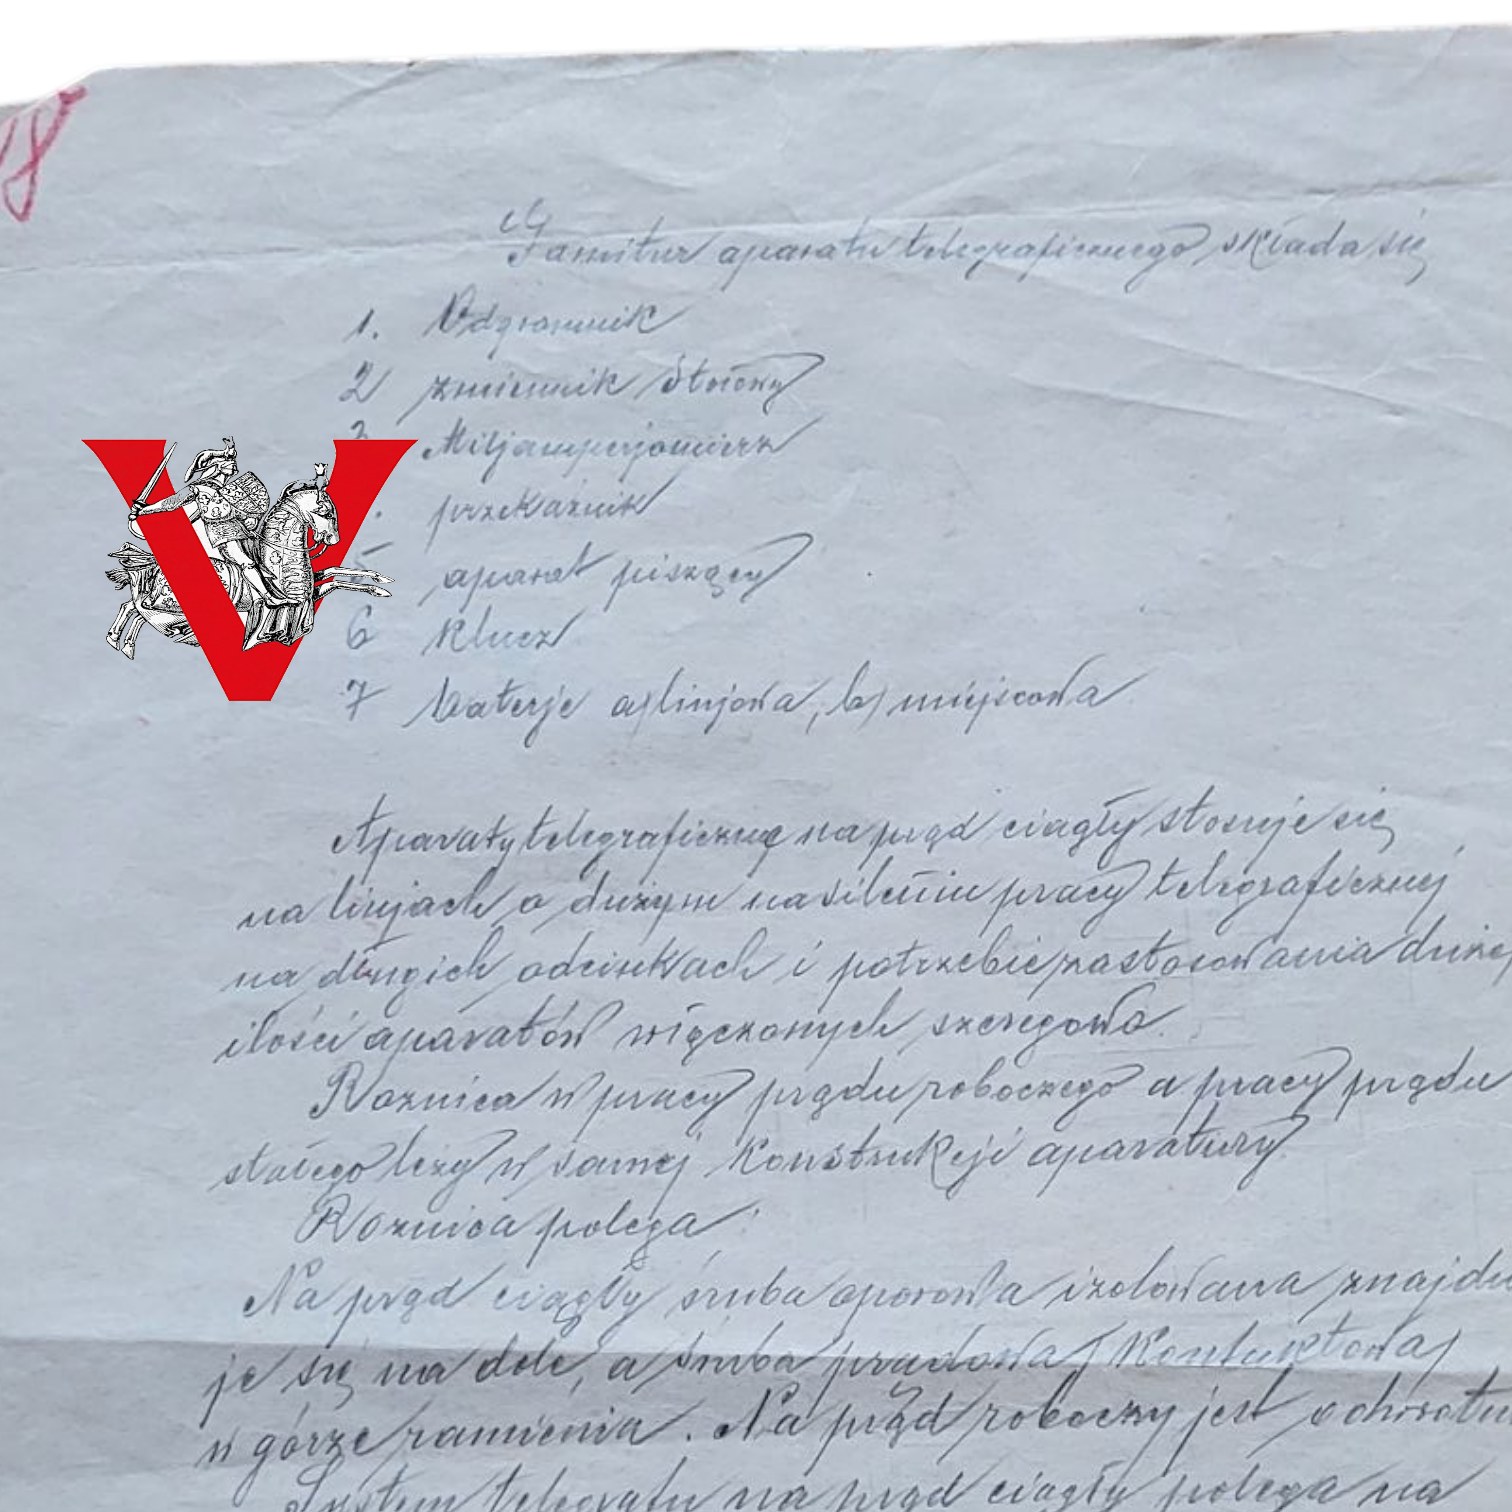 Garnitur aparatu telegraficznego składa się
1. Odgromnik
2 zmiennik stosowy
3. Miljamperjomierz
. przekaźnik
5 aparat piszący
6 klucz
7 baterje a) linjowa, b) miejscowa
Aparaty telegraficzne na prąd ciągły stosuje się
na linjach o dużym nasileniu pracy telegraficznej
na długich odcinkach i potrzebie zastosowania dużej
ilości aparatów włączonych szeregowo.
Roznica w pracy prądu roboczego a pracy prądu
stałego leży w samej konstrukcji aparatury
Roznica polega:
Na prąd ciągły śruba oporowa izolowana znajdu
je się na dole, a śruba prądowa / kontaktowa /
w górze ramienia. Na prąd roboczy jest odwrotn
System telegrafu na prąd ciągły polega na
V